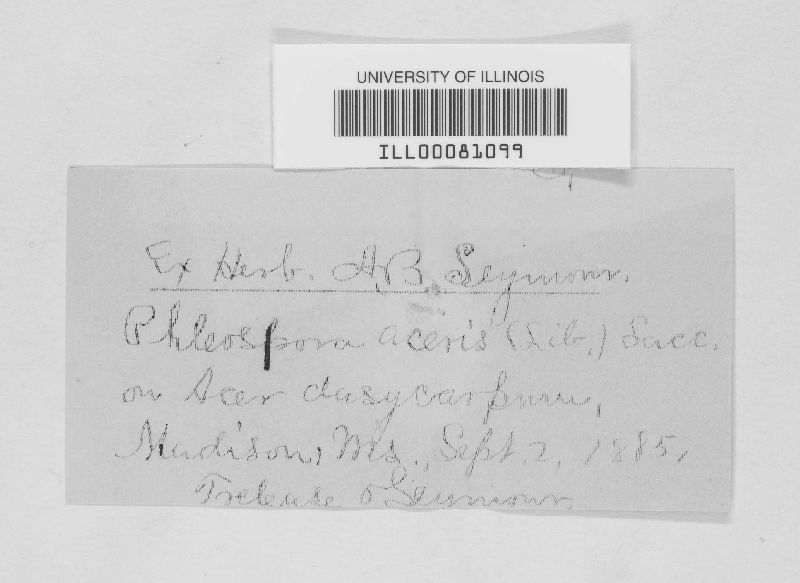 UNIVERSITY OF ILLINOIS
ILL00081099
Ex Herb. A.B. Seymour.
Phleospora aceris (Lib.) Sacc.
on Acer dasycarpum,
Madison, Wis., Sept. 2, 1885,
Trelease & Seymour.